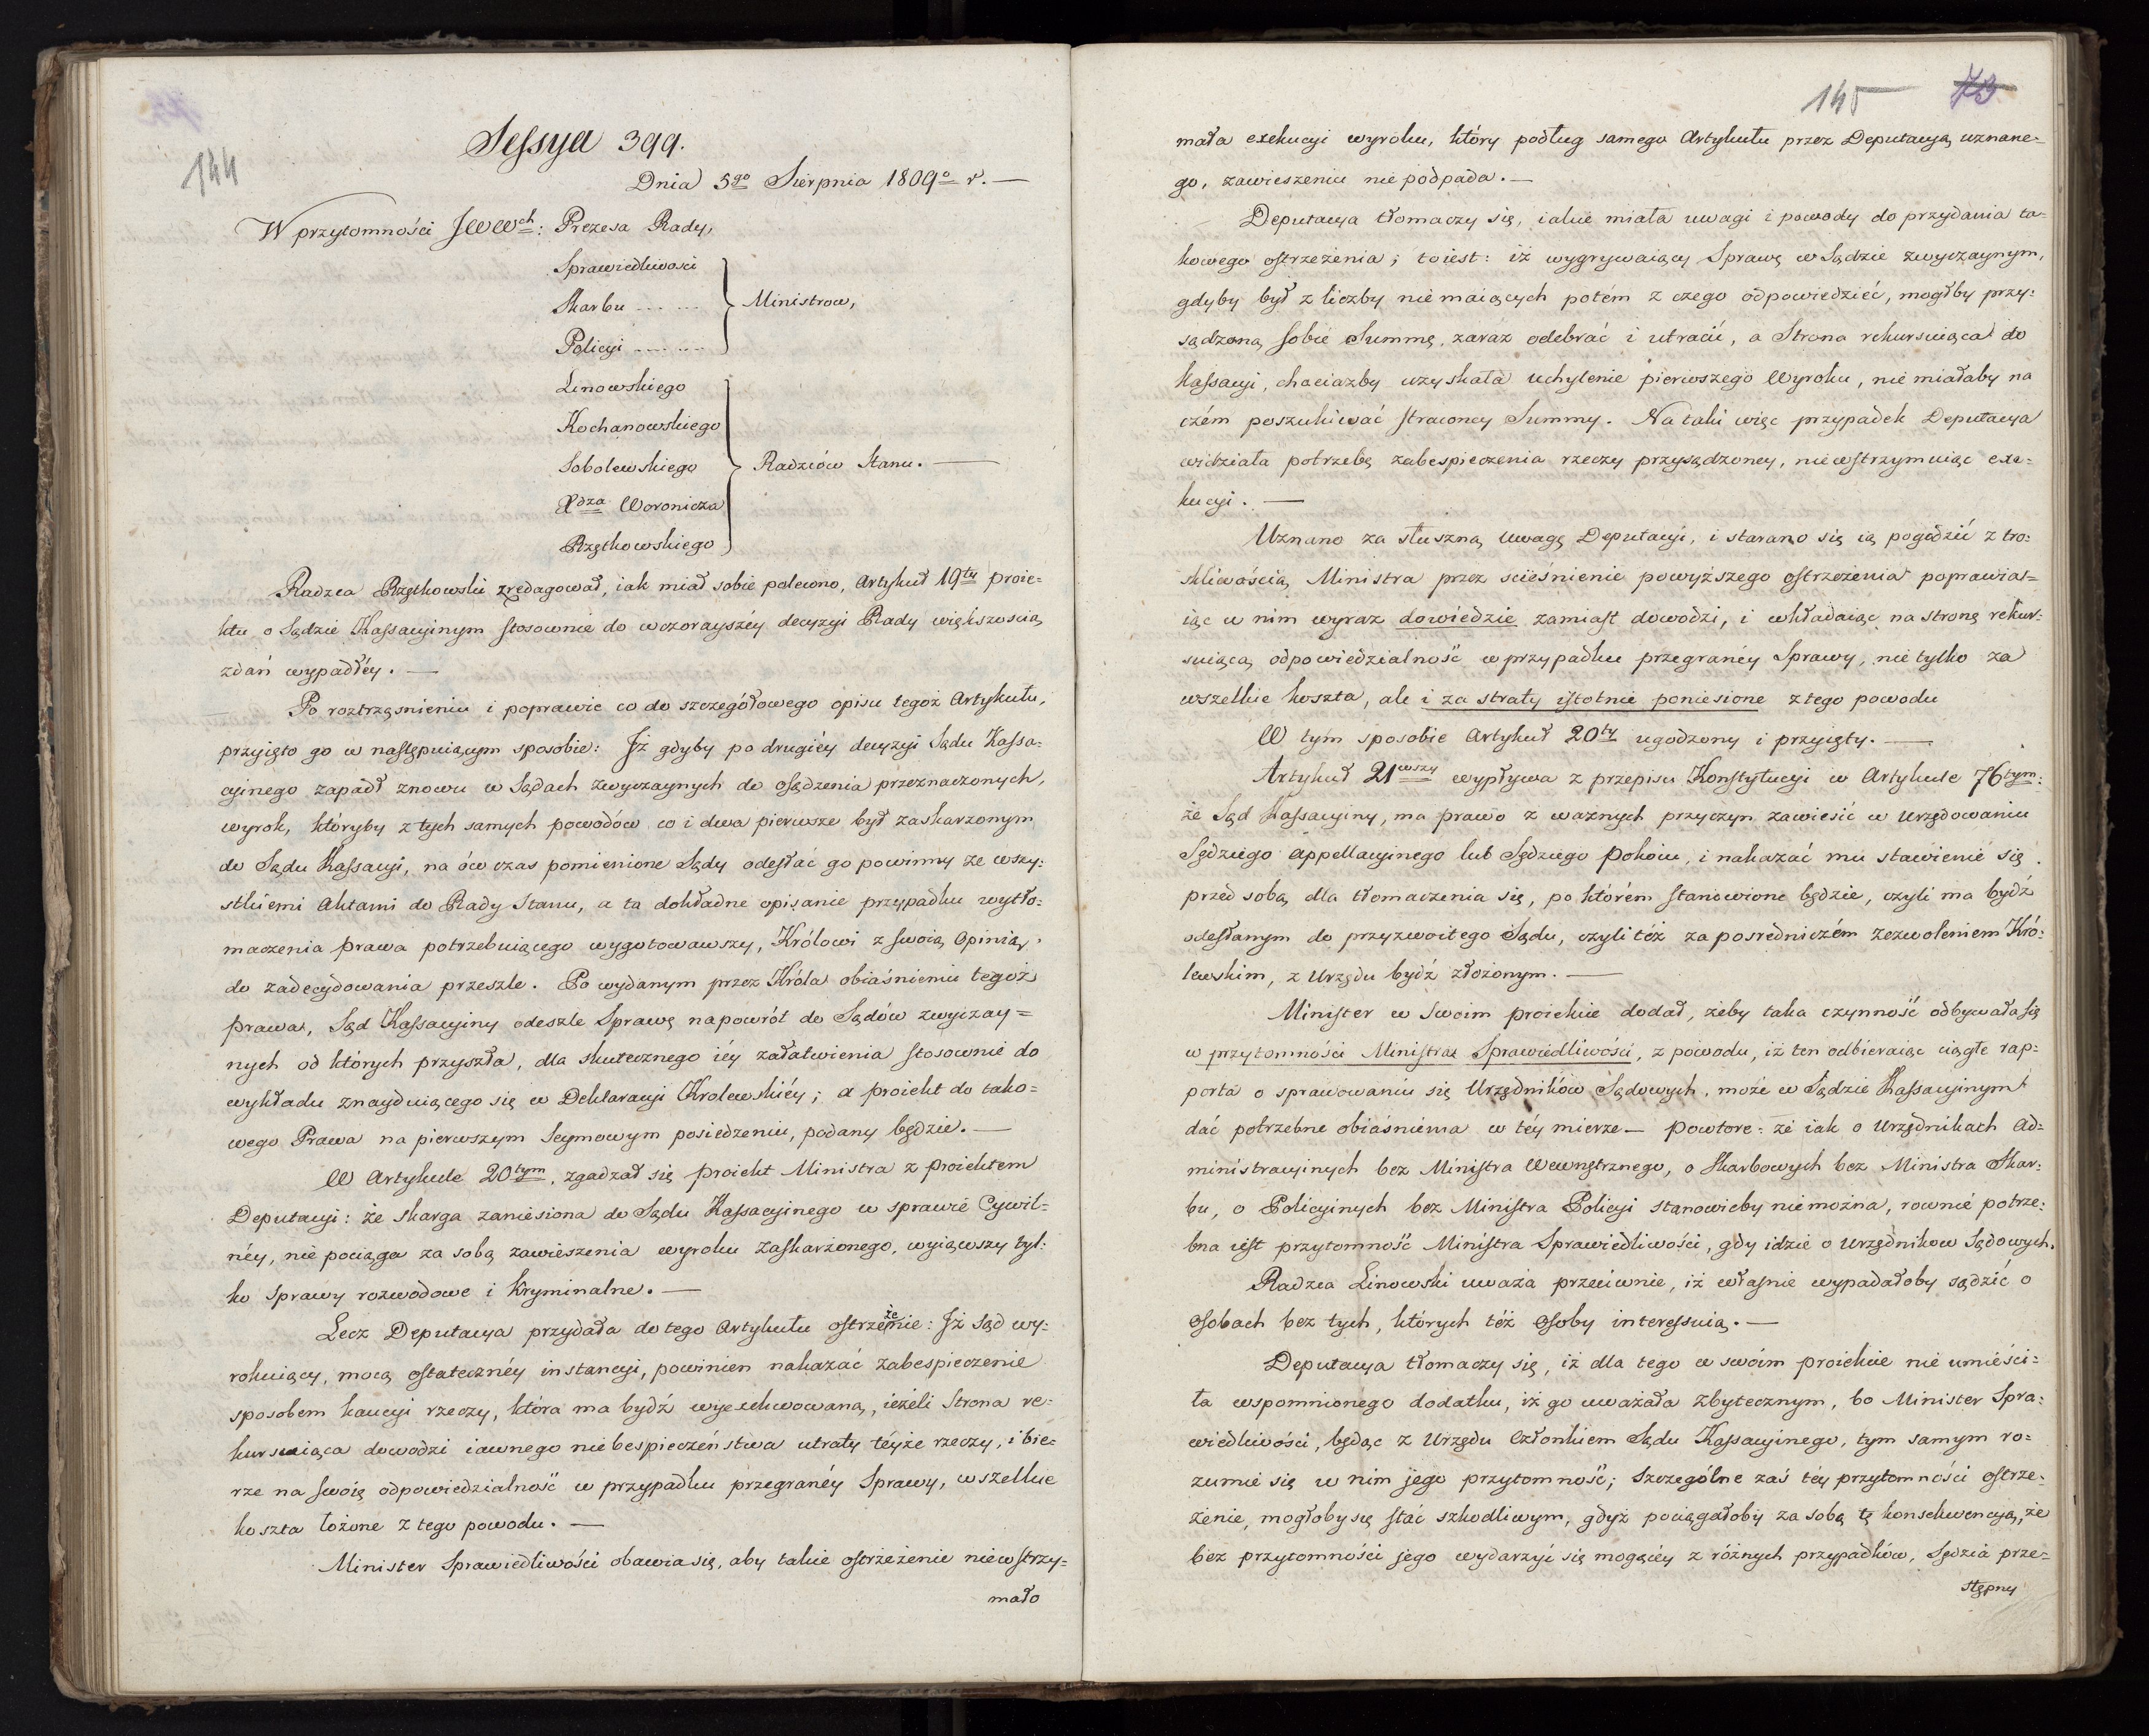 144
Sessya 399.
Dnia 5go Sierpnia 1809o r. —
W przytomności JWWch: Prezesa Rady,
Sprawiedliwosci
Skarbu - - - - -
Policyi - - - - -
Ministrow,
Linowskiego
Kochanowskiego
Sobolewskiego
Xdza Woronicza
Rzętkowskiego
Radzców Stanu. —
Radzca Rzętkowski zredagował, iak miał sobie polecono, Artykuł 19ty proie=
ktu o Sądzie Kassacyinym stosownie do wczorayszéy decyzyi Rady większoscią
zdań wypadłéy. —
Po roztrząsnieniu i poprawie co do szczegółowego opisu tegoż Artykułu,
przyięto go w następuiącym sposobie: Iż gdyby po drugiéy decyzyi Sądu Kassa=
cyinego zapadł znowu w Sądach zwyczaynych do osądzenia przeznaczonych,
wyrok, któryby z tych samych powodów co i dwa pierwsze był zaskarzonym
do Sądu Kassacyi, na ów czas pomienione Sądy odesłać go powinny ze wszy=
stkiemi Aktami do Rady Stanu, a ta dokładne opisanie przypadku wytło=
maczenia prawa potrzebuiącego wygotowawszy, Królowi z swoią Opinią,
do zadecydowania przeszle. Po wydanym przez Króla obiaśnieniu tegoż
prawa, Sąd Kassacyiny odeszle Sprawę napowrót do Sądów zwyczay=
nych od których przyszła, dla skutecznego iéy załatwienia stosownie do
wykładu znayduiącego się w Deklaracyi Krolewskiéy; a proiekt do tako=
wego Prawa na pierwszym Seymowym posiedzeniu, podany będzie. —
W Artykule 20tym, zgadzał się proiekt Ministra z proiektem
Deputacyi: że skarga zaniesiona do Sądu Kassacyinego w sprawie Cywil=
néy, nie pociąga za sobą zawieszenia wyroku zaskarżonego, wyiąwszy tyl=
ko Sprawy rozwodowe i kryminalne. —
Lecz Deputacya przydała do tego Artykułu ostrzeżenie: Iż Sąd wy=
rokuiący, mocą ostatecznéy instancyi, powinien nakazać zabespieczenie
sposobem kaucyi rzeczy, która ma bydź wyexekwowaną, ieżeli Strona re=
kursuiąca dowodzi iawnego niebespieczeństwa utraty téyże rzeczy, i bie=
rze na swoię odpowiedzialność w przypadku przegranéy Sprawy, wszelkie
koszta łożone z tego powodu. —
Minister Sprawiedliwości obawia się, aby takie ostrzeżenie niewstrzy=
mało
145 73
mała exekucyi wyroku, który podług samego Artykułu przez Deputacyą uznane=
go, zawieszeniu nie podpada. —
Deputacya tłomaczy się, iakie miała uwagi i powody do przydania ta=
kowego ostrzeżenia; to iest: iż wygrywaiący Sprawę w Sądzie zwyczaynym,
gdyby był z liczby niemaiących potém z czego odpowiedzieć, mogłby przy=
sądzoną sobie Summę zaraz odebrać i utracić, a Strona rekursuiąca do
Kassacyi, chociażby uzyskała uchylenie pierwszego Wyroku, nie miałaby na
czém poszukiwać straconey Summy. Na taki więc przypadek Deputacya
widziała potrzebę zabespieczenia rzeczy przysądzoney, niewstrzymuiąc exe=
kucyi. —
Uznano za słuszną uwagę Deputacyi, i starano się ią pogodzić z tro=
skliwością Ministra przez scieśnienie powyższego ostrzeżenia poprawia=
iąc w nim wyraz dowiedzie zamiast dowodzi, i wkładaiąc na stronę rekur=
suiącą odpowiedzialność w przypadku przegranéy Sprawy, nie tylko za
wszelkie koszta, ale i za straty istotnie poniesione z tego powodu
W tym sposobie Artykuł 20ty ugodzony i przyięty. —
Artykuł 21wszy wypływa z przepisu Konstytucyi w Artykule 76tym:
że Sąd Kassacyiny, ma prawo z ważnych przyczyn zawiesić w Urzędowaniu
Sędziego Appellacyinego lub Sędziego pokoiu, i nakazać mu stawienie się
przed sobą dla tłomaczenia się, po którém stanowione będzie, czyli ma bydź
odesłanym do przyzwoitego Sądu, czyli téż za posrednictwém zezwoleniem Kró=
lewskim, z Urzędu bydź złożonym. —
Minister w Swoim proiekcie dodał, żeby taka czynność odbywała się
w przytomności Ministra Sprawiedliwości, z powodu, iż ten odbieraiąc ciągłe rap=
porta o sprawowaniu się Urzędników Sądowych, może w Sądzie Kassacyinym
dać potrzebne obiaśnienia w téy mierze — powtore: że iak o Urzędnikach Ad=
ministracyinych bez Ministra Wewnętrznego, o Skarbowych bez Ministra Skar=
bu, o Policyinych bez Ministra Policyi stanowićby niemożna, rownie potrze=
bna iest przytomność Ministra Sprawiedliwości, gdy idzie o Urzędnikow Sądowych.
Radzca Linowski uważa przeciwnie, iż własnie wypadałoby sądzić o
Osobach bez tych, których téż Osoby interessuią. —
Deputacya tłomaczy się, iż dla tego w swoim proiekcie nie umieści=
ła wspomnionego dodatku, iż go uważała zbytecznym, bo Minister Spra=
wiedliwości, będąc z Urzędu Członkiem Sądu Kassacyinego, tym samym ro=
zumie się w nim jego przytomność; Szczególne zaś téy przytomności ostrze=
żenie, mogłoby się stać szkodliwym, gdyż pociągałoby za sobą tę konsekwencyą, że
bez przytomności jego wydarzyć się mogącéy z różnych przypadków, Sędzia prze=
stępny